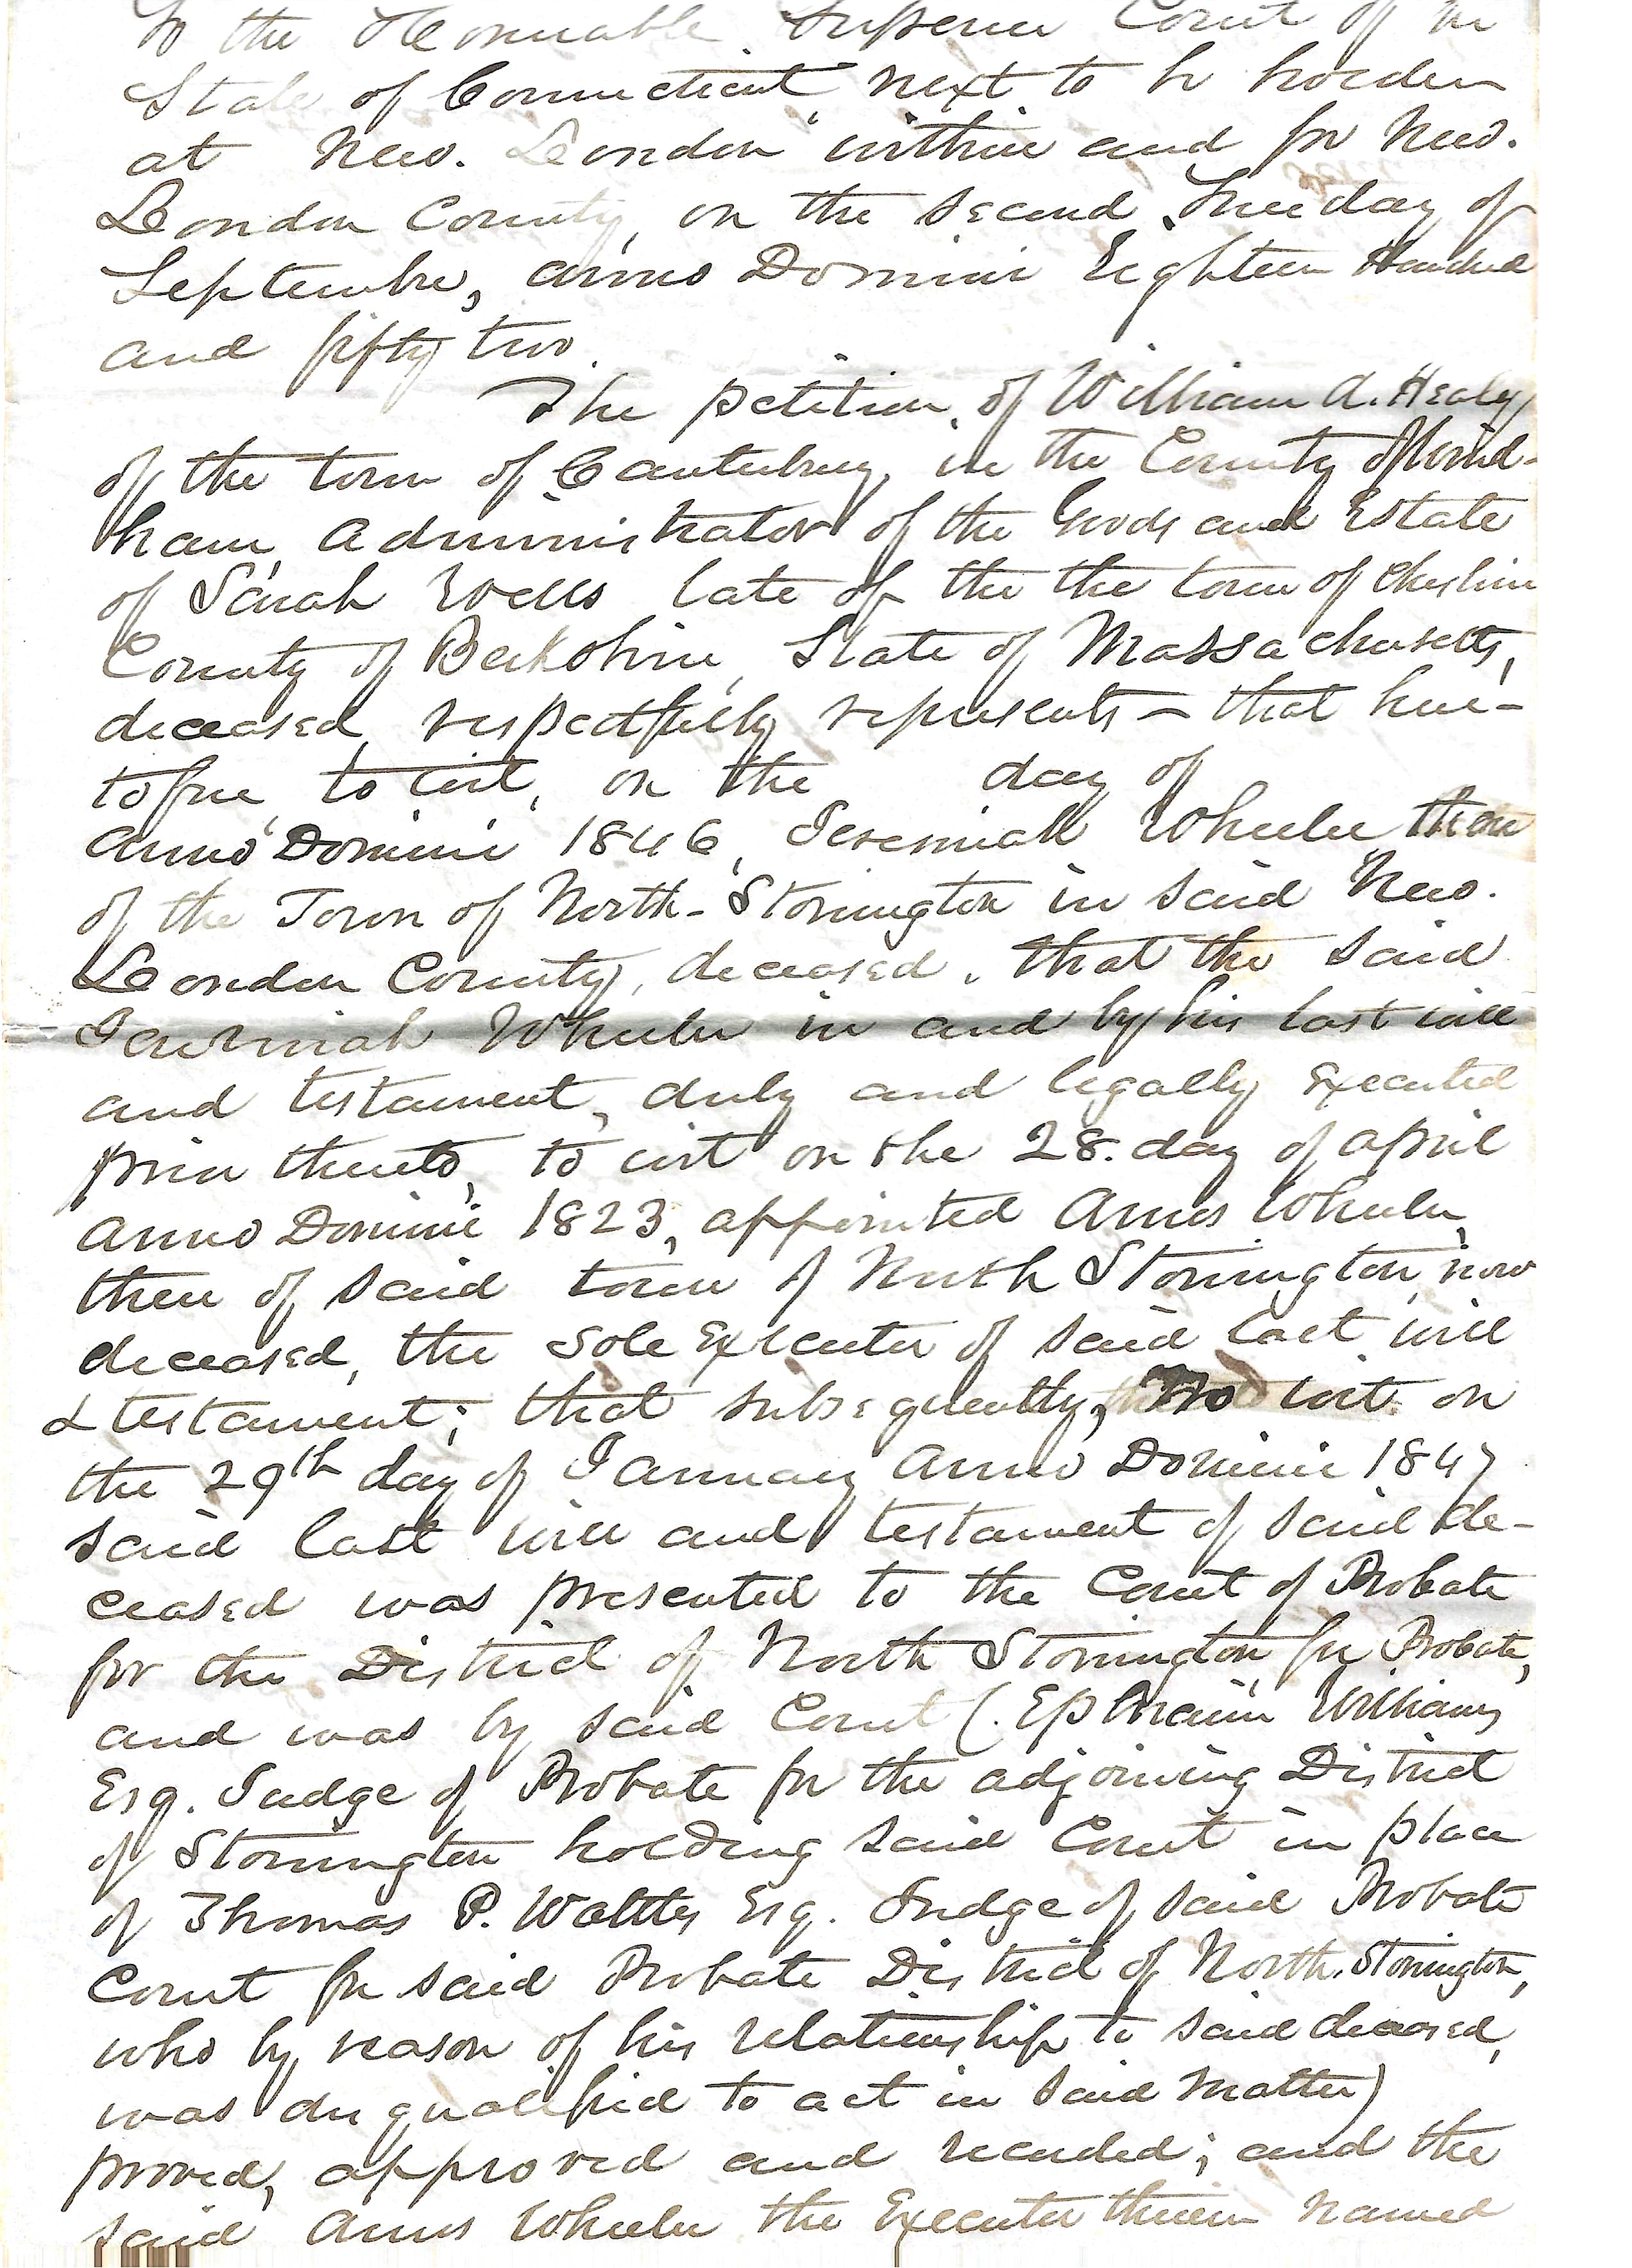 To the Honorable Superior Court of the
State of Connecticut next to be holden
at New. London within and for New.
London County, on the second Tuesday of
September, anno Domini Eighteen Hundred
and fifty two.
The petition of William A. Healy
of the town of Canterbury, in the County of Wind-
ham Administrator of the Goods and Estate
of Sarah Wells late of the the town of Cheshire
County of Berkshire, State of Massachusetts,
deceased, respectfully represents – that here-
tofore, to wit, on the day of
Anno Domini 1846, Jeremiah Wheeler then
of the Town of North-Stonington in said New.
London County, deceased, that the said
Jeremiah Wheeler in and by his last will
and testament, duly and legally executed
prior thereto, to wit on the 28. day of april
Anno Domini 1823, appointed Amos Wheeler,
then of said town of North Stonington, now
deceased, the sole Executor of said last will
& testament; that subsequently, to wit on
the 29th day of January Anno Domini 1847
said last will and testament of said de-
ceased was presented to the Court of Probate
for the District of North Stonington for Probate,
and was by said Court (. Ephraim Williams
Esq. Judge of Probate for the adjoining District
of Stonington holding said Court in place
of Thomas P. Wattles Esq. Judge of said Probate
Court for said Probate District of North. Stonington,
who by reason of his relationship to said deceased,
was disqualified to act in said matter)
proved, approved and recorded; and the
said Amos Wheeler the Executor therein named